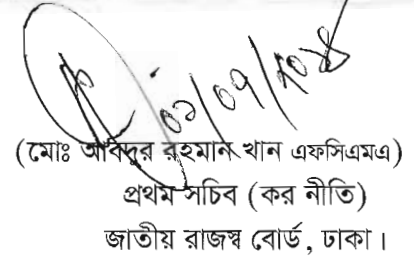 (মোঃ আবিদুর রহমান খান এফসিএমএ)
প্রথম সচিব (কর নীতি)
জাতীয় রাজস্ব বোর্ড, ঢাকা।